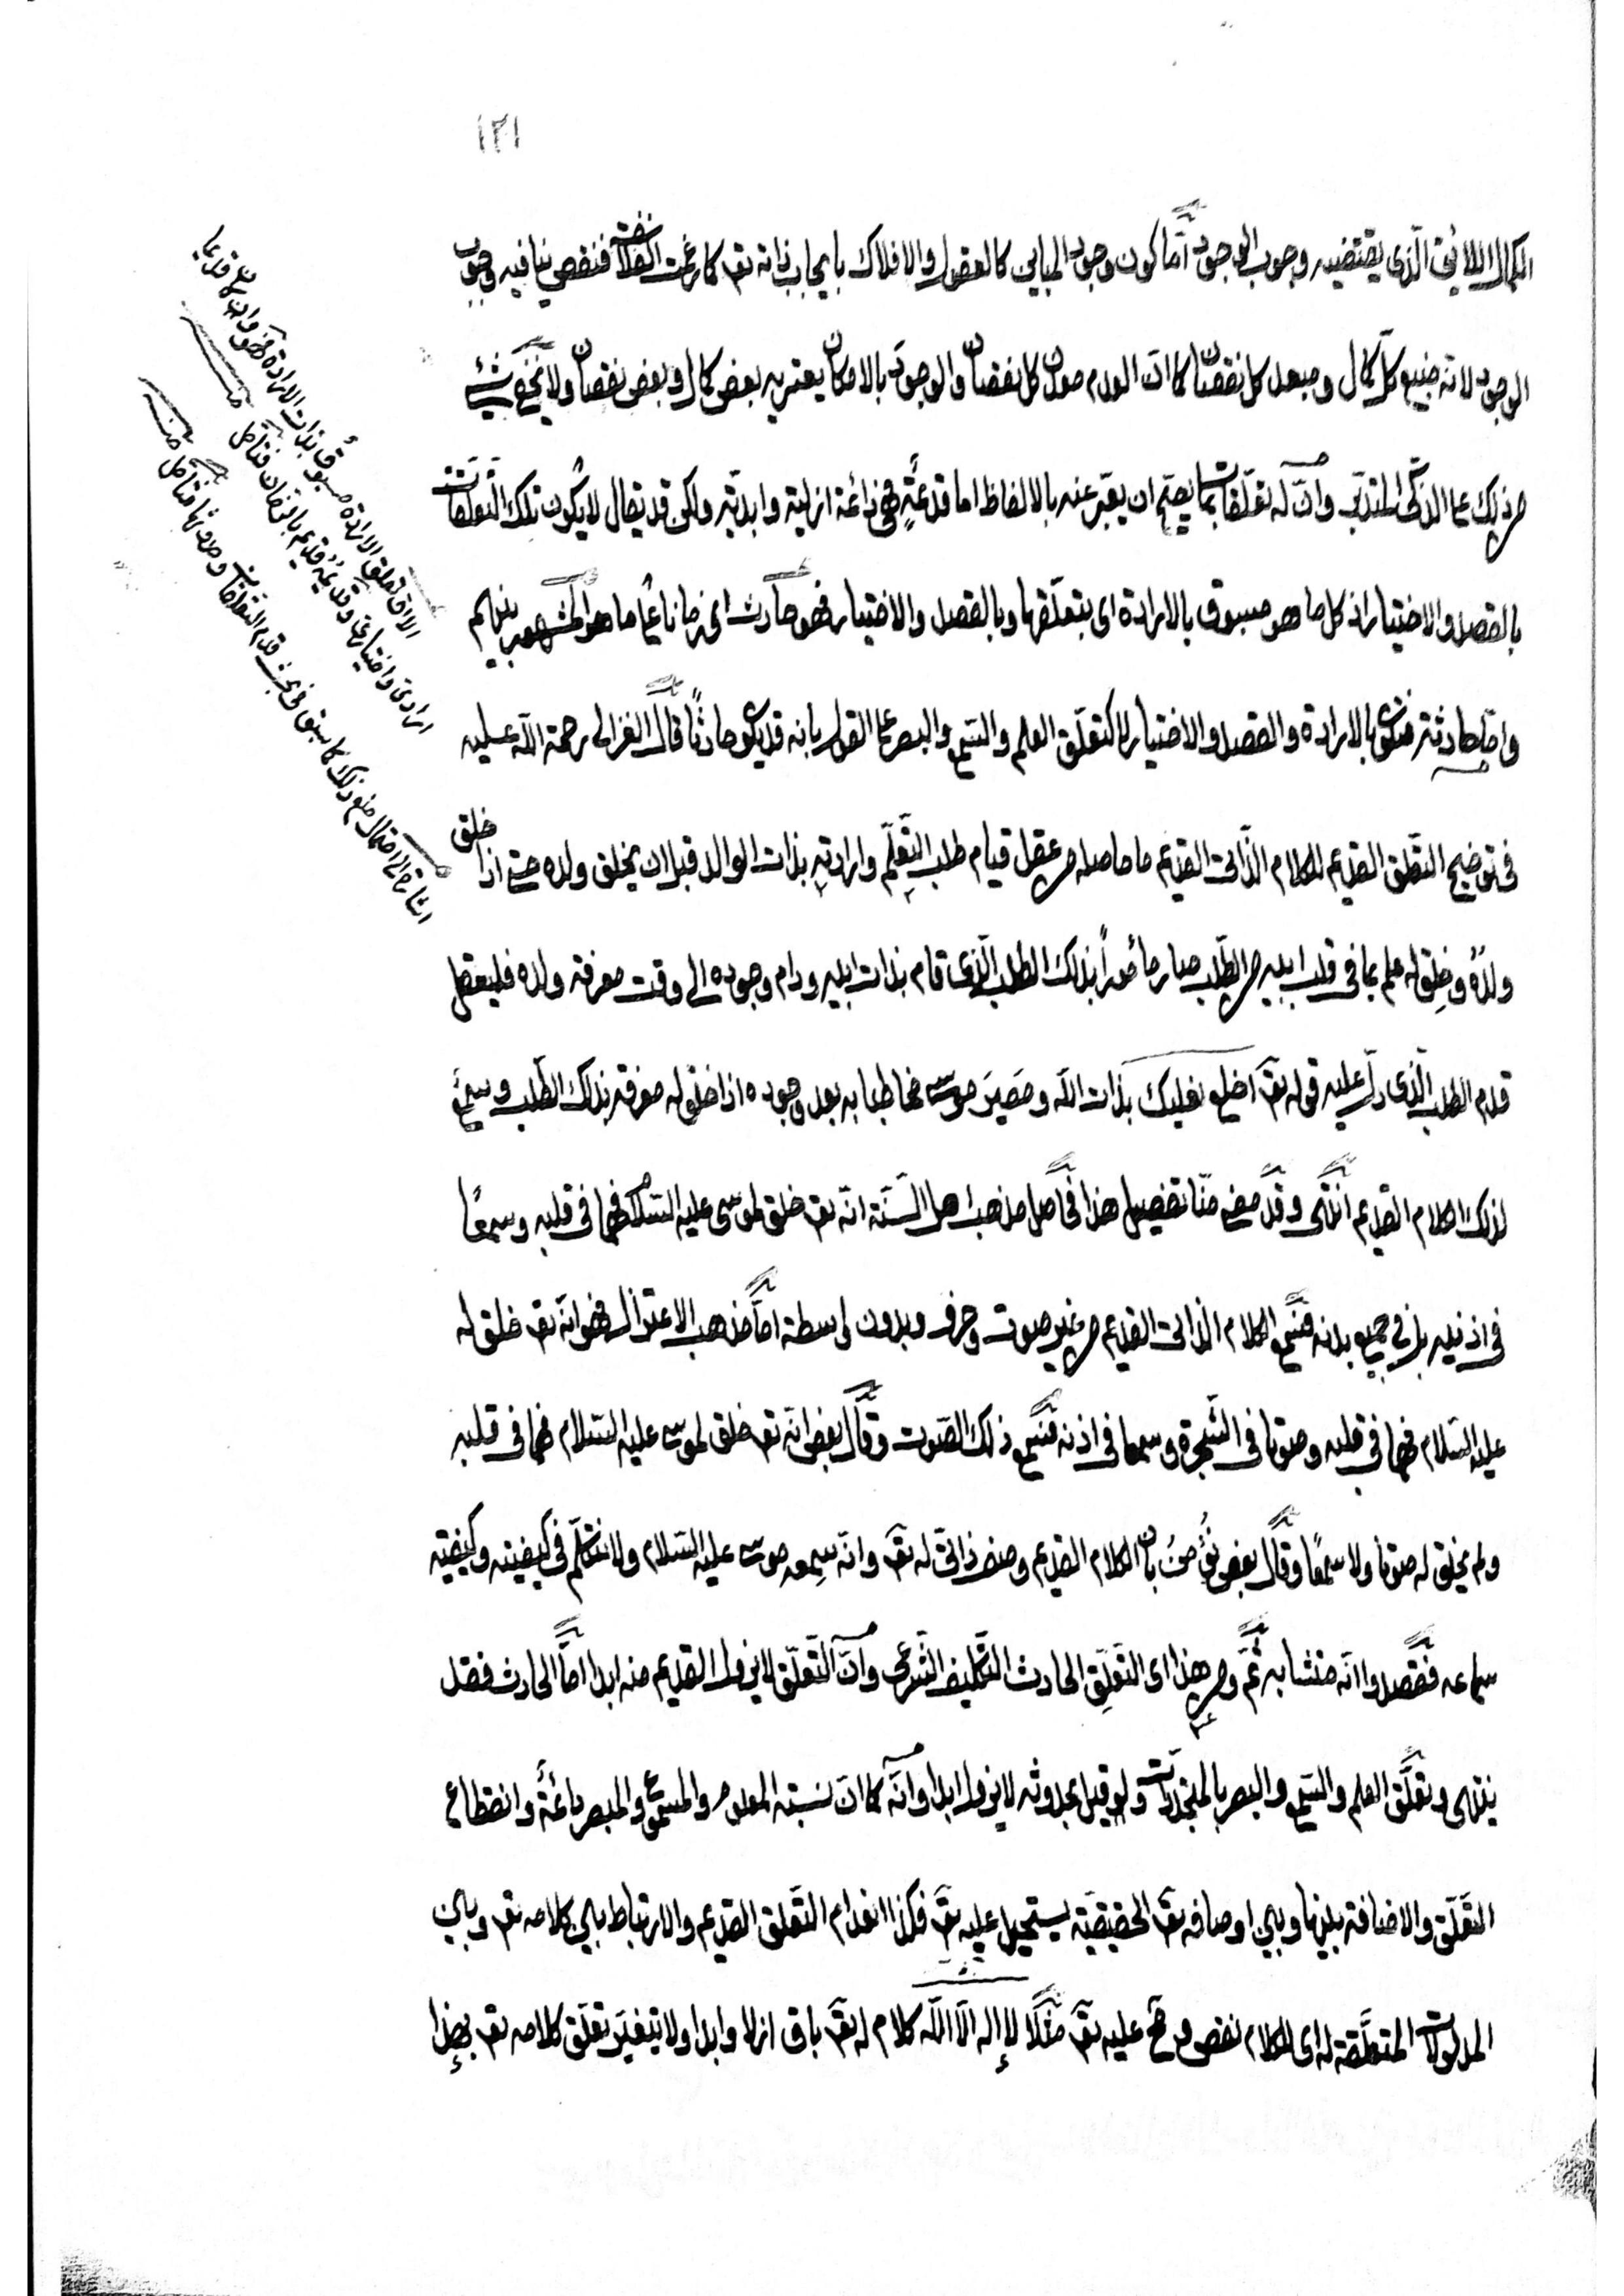 ١٢١
الكمال اللائق الّذى يقتضيه وجوب الوجود أمّا كون وجود المباين كالعقول والافلاك بايجاب ذاته تع كما زعمت الفلاسفة فنقص ينافيه وجوب
الوجود لانه منبع كلّ كمال ومبعد كل نقصان كما انّ العدم معدن كل نقصان والوجود بالامكان يعتريه بعض كمال وبعض نقصان ولا يخفى شئ
من ذلك على الذّكىّ المتدبّر وانّ له تعلّقات بما يصحّ ان يعبّر عنه بالالفاظ اما قديمةٍ فهى دائمة ازلية وابديّة ولكن قد يقال لا يكون تلك التّعلّقات
بالقصد والاختيار اذ كل ما هو مسبوق بالارادة اى بتعلّقها وبالقصد والاختيار فهو حادث اى زمانا على ما هو المشهور بينهم
وامّا حادثة فتكون بالارادة والقصد والاختيار لا كتعلّق العلم والسّمع والبصر على القول بانه قد يكون حادثًا قال الغزالى رحمة اللّه عليه
فى توضيح التعلّق القديم للكلام الذّاتى القديم ما حاصله من عقل قيام طلب التّعلّم وارادته بذات الوالد قبل ان يخلق ولده حتى اذا خلق
ولدُه وخلِق له علم بما فى قلب ابيه من الطّلب صار مأموراً بذلك الطلب الّذى قام بذات ابيه ودام وجوده الى وقت معرفة ولده فليعقل
قدم الطلب الّذى دلّ عليه قوله تع اخلع نعليك بذات اللّه ومصيرَ موسى مخاطبا به بعد وجوده اذا خلق له معرفة بذلك الطّلب وسمعٌ
لذلك الكلام القديم انتهى وقد مضى منّا تفصيل هذا فحاصل مذهب اهل السّنّة انّه تع خلق لموسى عليه السّلام فهما فى قلبه وسمعًا
فى اذنيه بل فى جميع بدنه فسمع الكلام الذاتى القديم من غير صوت وحرف وبدون واسطة امّا مذهب الاعتزال فهو انّه تع خلق له
عليه السّلام فهما فى قلبه وصوتا فى الشّجرة وسمعا فى اذنه فسمع ذلك الصّوت وقال بعض انّه تع خلق لموسى عليه السّلام فهما فى قلبه
ولم يخلق له صوتا ولا سمعًا وقال بعض نؤمنُ بان الكلام القديم وصف ذاتىّ له تع وانّه سمِعه موسى عليه السّلام ولا نتكلّم فى كيفيته وكيفية
سماعه فقصدوا انّه متشابه ثمّ ومن هذا اى التعلّق الحادث التّكليف الشّرعى وانّ التّعلّق لا يزول القديم منه ابدا امّا الحادث فقد
ينتهى وتعلّق العلم والسّمع والبصر بالمتجدّدات ولو قيل بحدوثه لا يزول ابدا وانّه كما انّ نسبة المعلوم والمسموع والمبصر دائمةٌ وانقطاع
التّعلّق والاضافة بينها وبين اوصافه تع الحقيقيّة يستحيل عليه تع فكذا انعدام التّعلق القديم والارتباط بين كلامه تع وبين
المدلولات المتعلّقة له اى للكلام نقص ومح عليه تع مثلًا لا إله الّا اللّه كلام له تع باق ازلا وابدا ولا يتغيّر تعلّق كلامه تع بهذا